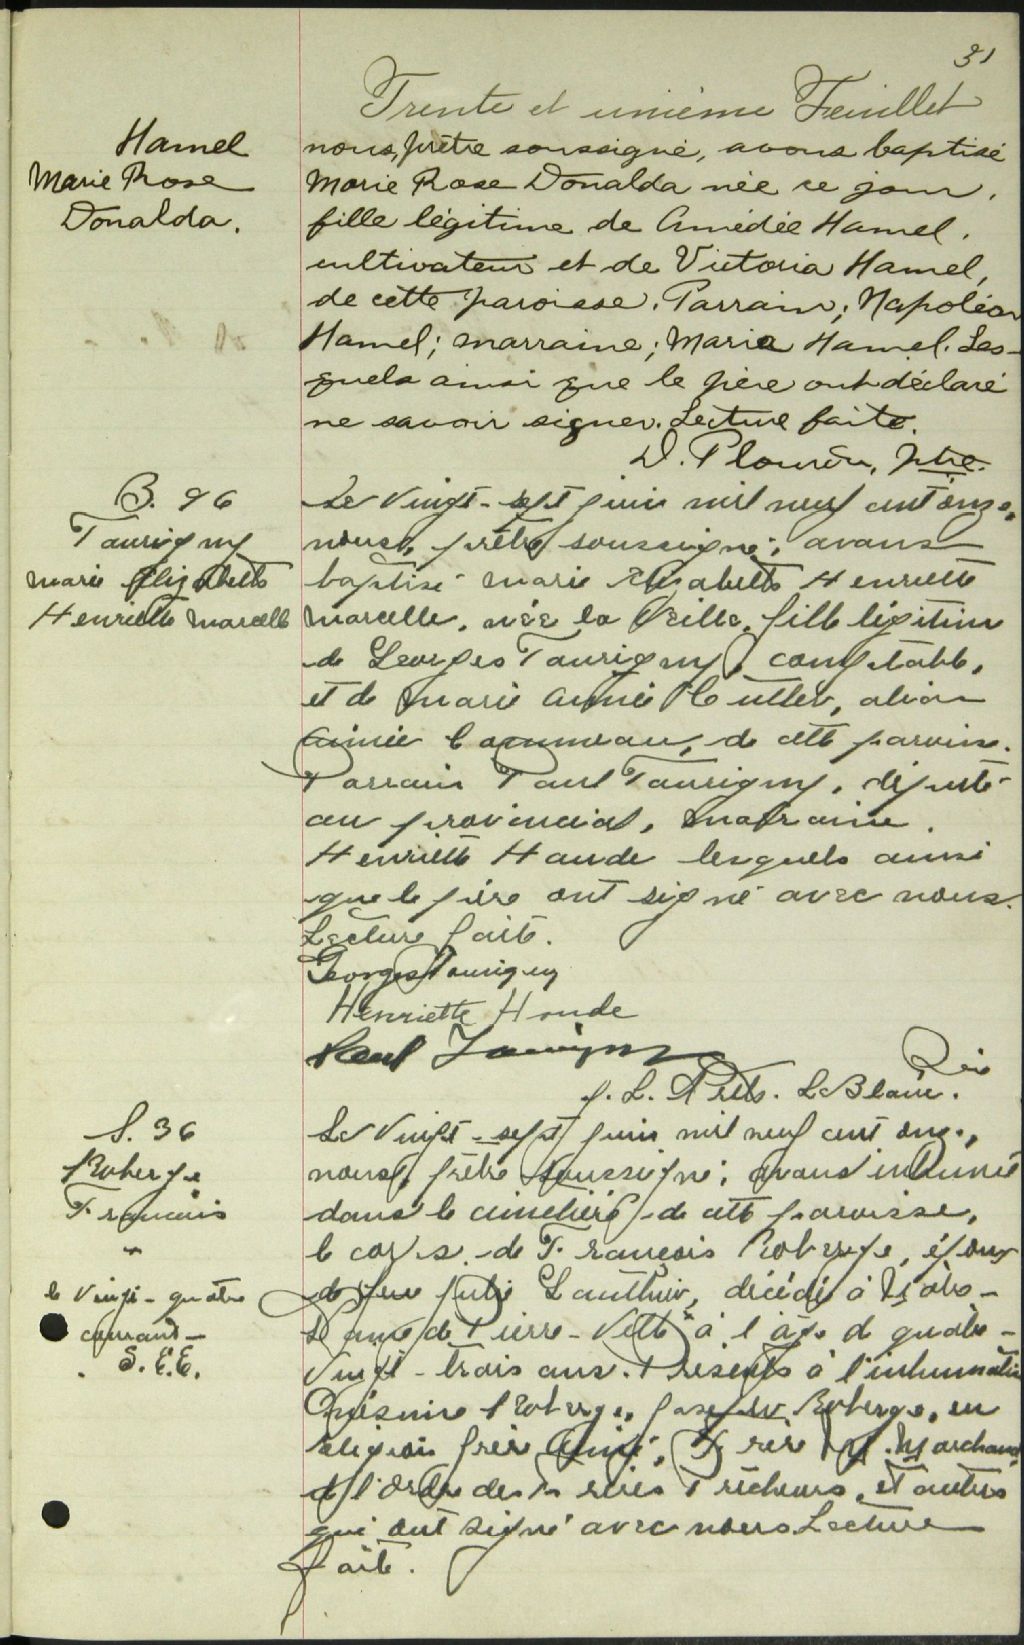 31
Trente et unième Feuillet
Hamel
Marie Rose
Donalda.
nous, prêtre soussigné, avons baptisé
Marie Rose Donalda née ce jour,
fille légitime de Amédée Hamel,
cultivateur et de Victoria Hamel,
de cette paroisse. Parrain; Napoléon
Hamel; marraine; Maria Hamel. Les-
quels ainsi que le père ont déclaré
ne savoir signer. Lecture faite.
D. Plourde, ptre.
B. 96
Tourigny
Marie Elizabeth
Henriette Marcelle
Le vingt-sept juin mil neuf cent onze,
nous, prêtre soussigné, avons
baptisé Marie Elizabeth Henriette
Marcelle, née la veille, fille légitime
de Georges Tourigny, comptable,
et de Marie Annie
Aimée de cette paroisse.
Parrain Paul Tourigny, député
au provincial, marraine,
Henriette Houde lesquels ainsi
que le père ont signé avec nous.
Lecture faite.
Georges Tourigny
Henriette Houde
Paul Tourigny
LeBlanc.
S. 36
Roberge
François
le vingt-quatre
courant-
S.E.E.
Le vingt-sept juin mil neuf cent onze,
nous, prêtre soussigné, avons inhumé
dans le cimetière de cette paroisse,
le corps de François Roberge, époux
de feue Julie Gauthier, décédé à Notre-
Dame de Pierre-Ville à l'âge de quatre-
vingt-trois ans. Présents à l'inhumation
Onésime Roberge, Joseph Roberge, en
religion frère Aimé, Frère M. Marchand
de l'Ordre des Frères Prêcheurs, et autres
qui ont signé avec nous Lecture
faite.